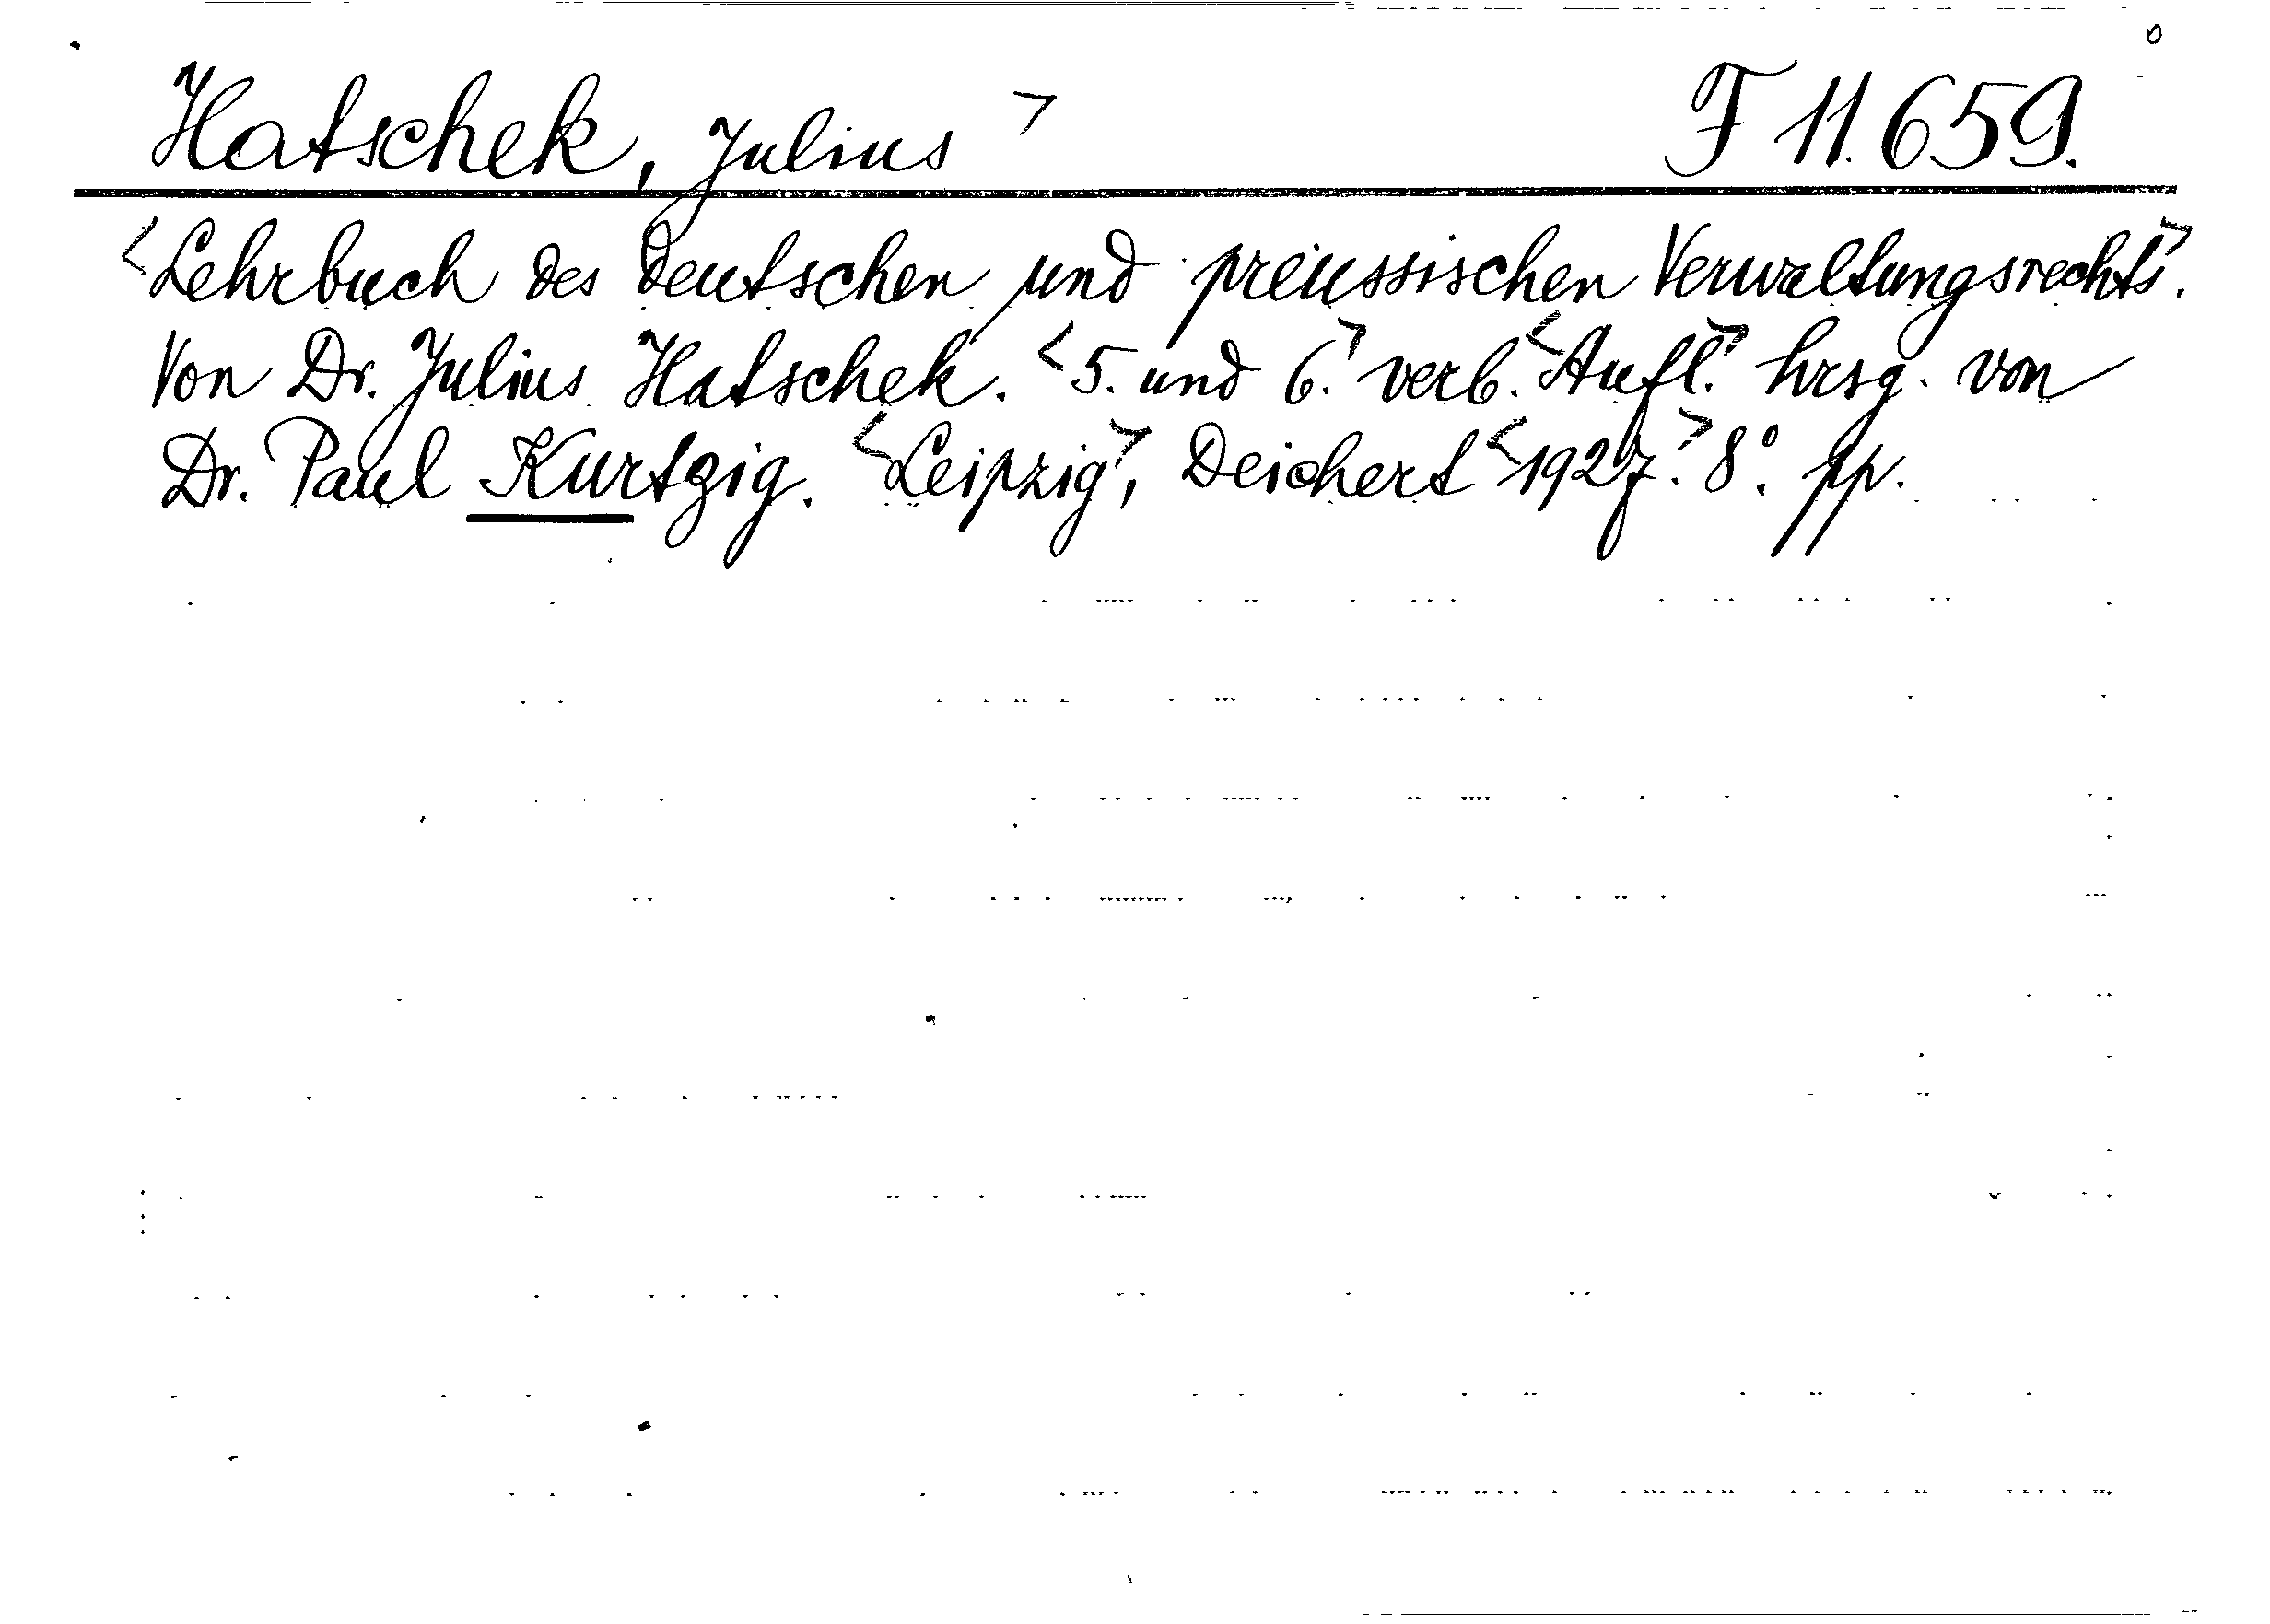 Hatschek, Julius > F 11.659.
<Lehrbuch des deutschen und preussischen Verwaltungsrechts>.
Von Dr. Julius Hatschek. <5. und 6.> verb. <Aufl.> hrsg. von
Dr. Paul Kurtzig. <Leipzig>, Deichert <1927.> 8°. pp.